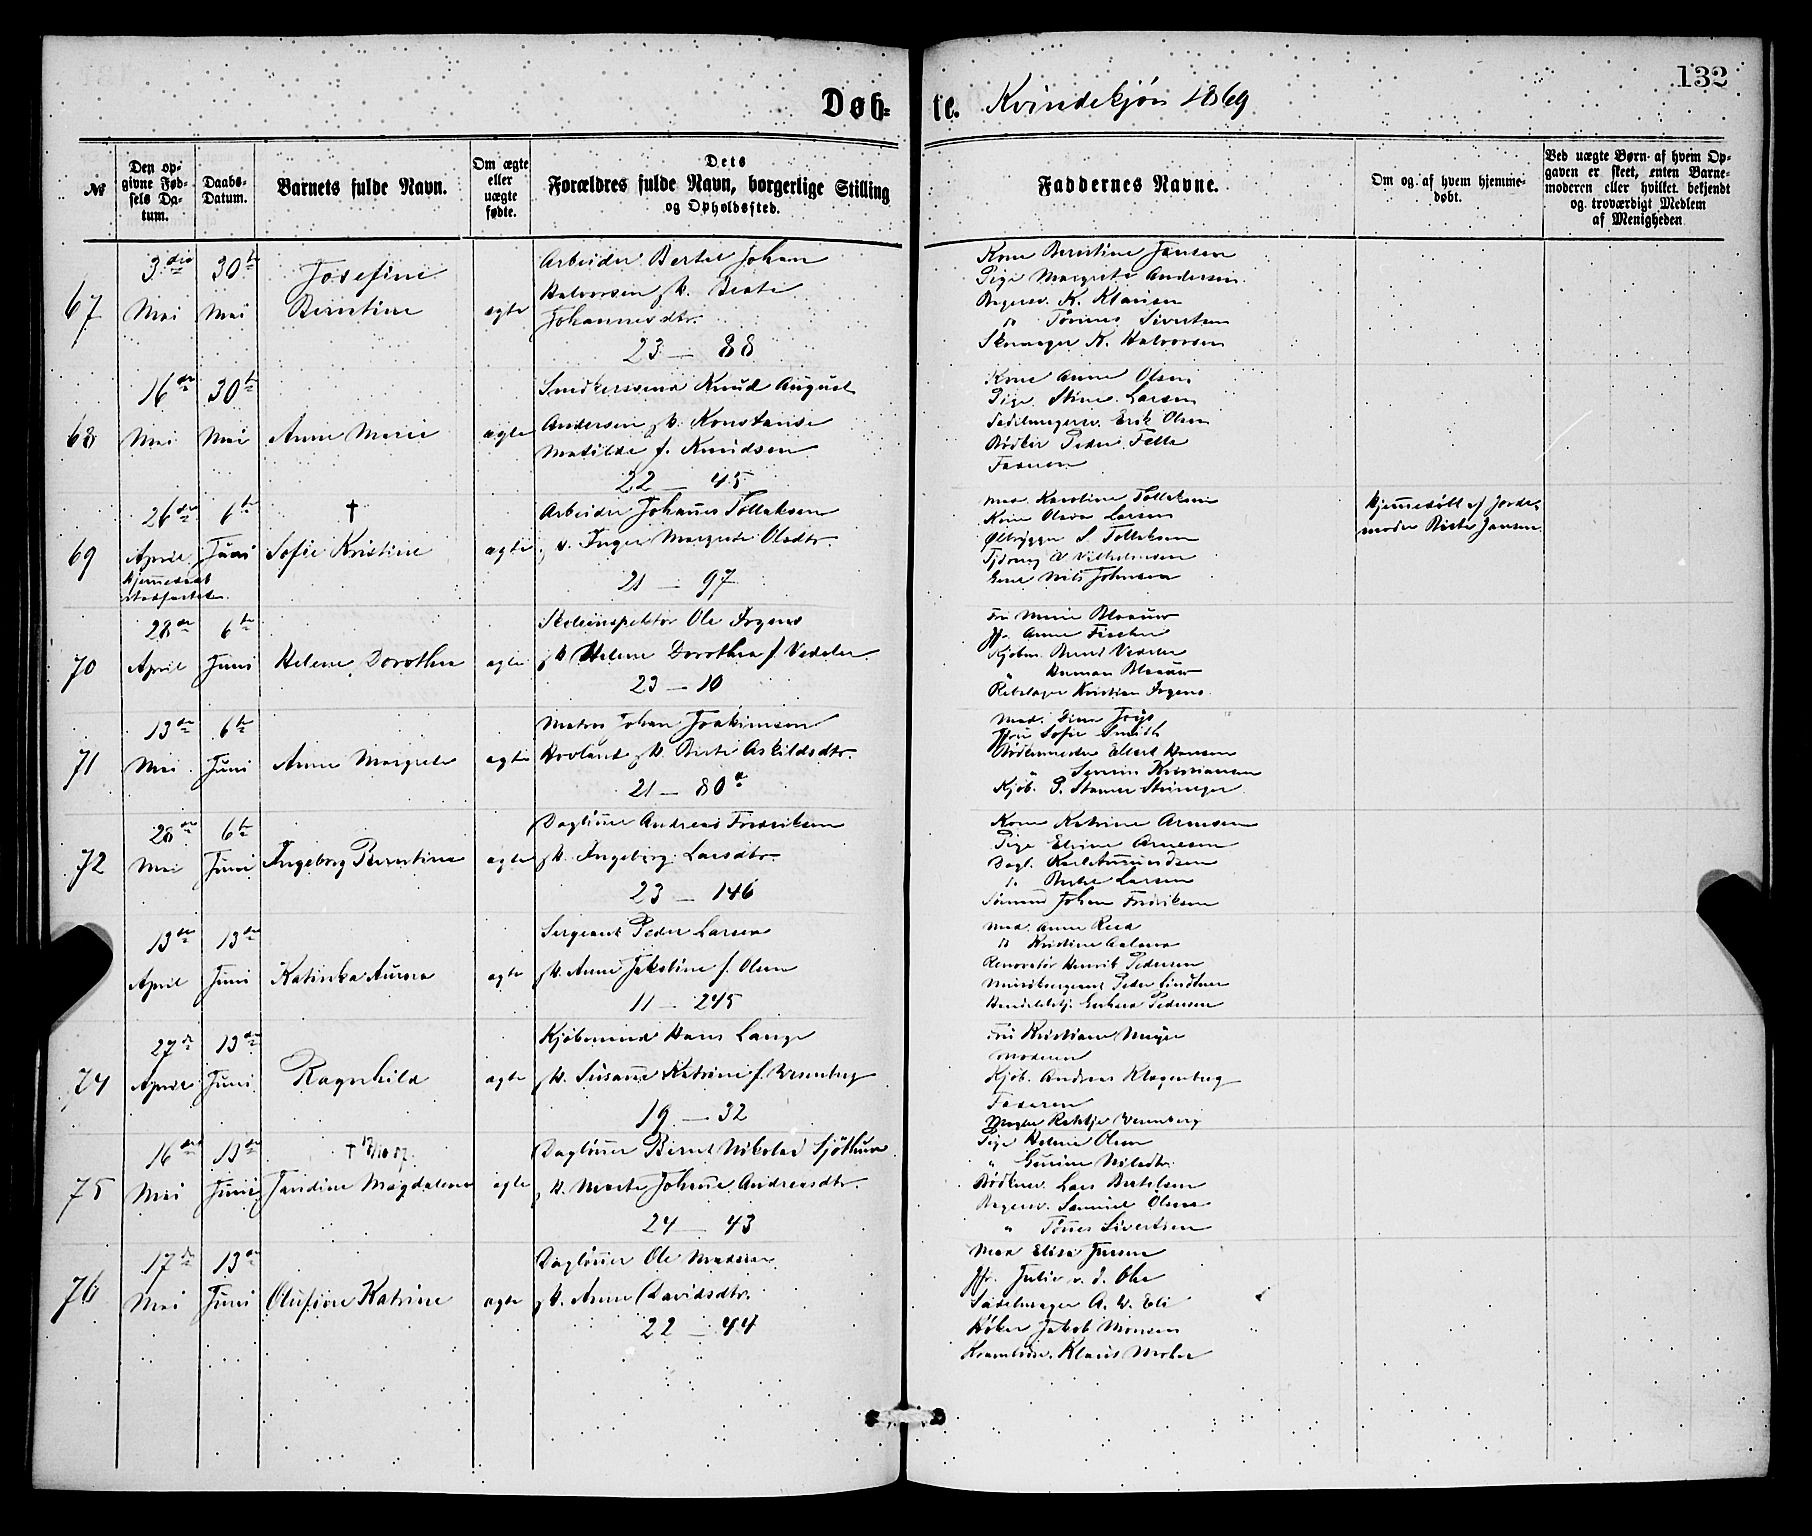 Døb-
te. Kvindekjøn 1869
132
№
Den op-
givne Fød-
sels Da-
tum.
Daabs-
Datum.
Barnets fulde Navn.
Om ægte
eller
uægte
fødte.
Dets
Forældres fulde Navn, borgerlige Stilling
og Opholdssted.
Faddernes Navne.
Om og af hvem hjemme-
døbt.
Ved uægte Børn af hvem Op-
gaven er skeet, enten Barne-
moderen eller hvilket bekjendt
og troværdigt Medlem
af Menigheden
67
3die
Mai
30te
Mai
Josefine
Berntine
ægte
Arbeider Bertel Johan
Halvorsen & H. Beate
Johannesdtr.
23 — 88
Kone Berntine Jansen
Pige Margrete Andersen
Bagersv. K. Klausen
Do Tønnes Sivertsen
Skomager K. Halvorsen
68
16de
Mai
30te
Mai
Anne Marie
ægte
Snedkersvend Knud August
Andersen & H. Konstanse
Matilde f. Knudsen
22 — 45
Kone Anne Olsen
Pige Stine Larsen
Sadelmagersv. Erik Olsen
Bødker Peder Felle
Faderen
69
26de
April
Hjemmedøbt
6te
Juni
†
Sofie Kristine
ægte
Arbeider Johannes Tollaksen
& H. Inger Margrete Olsdtr.
21 — 97
Mad. Karoline Tollaksen
Kone Olava Larsen
Ølbrygger S. Tollaksen
Vilhelmsen
Nils Johnsen
Hjemmedøbt af Jorde-
moder Birte Jansen
70
28de
April
6te
Juni
Helene Dorothea
ægte
Skoleinspektør Ole Irgens
& H. Helene Dorothea f. Vedeler
23 — 10
Fru Marie Blaauw
Jfr. Anne Fischer
Kjøbm. Bernt Vedeler
" Herman Blaauw
Rebslager Kristian Irgens
71
13de
Mai
6te
Juni
Anne Margrete
ægte
Matros Johan Joakimsen
Hovland & H. Berte Askildsdtr.
21 — 80a
Mad.
Fru Sofie Smith
Bødkermester Ellert Hansen
" Severin Kristiansen
Kjøb. P. Stamer Steineger
72
28de
Mai
6te
Juni
Ingeborg Berntine
ægte
Daglönner Andreas Fredriksen
& H. Ingeborg Larsdtr.
23 — 146
Kone Katrine Arnesen
Pige Elrine Arnesen
Dagl. Karl Amundsen
Do Bertel Larsen
Sømand Johan Fredriksen
13de
April
13de
Juni
Katinka Aurora
ægte
Sergeant Peder Larsen
& H. Anne Jakobine f. Olsen
11 — 245
Mad. Anne Reed
Do Kristine
Renovatør Henrik Pedersen
Peder Lindtner
Pedersen
74
27de
April
13de
Juni
Ragnhild
ægte
Kjøbmand Hans Lange
& H. Susanne Katrine f. Wesenberg
19 — 32
Fru Kristiane Meyer
Moderen
Kjøb. Andreas Klagenberg
Faderen
Wesenberg
75
16de
Mai
13de
Juni
† 17/10 87
Jandine Magdalena
ægte
Daglönner Bernt Nikolai Sjøthun
& H. Marte Johanne Andreasdtr.
24 — 43
Pige Helene Olsen
" Gurine Nilsdtr.
Bødkersv. Lars Bertelsen
Bagersv. Samuel Olsen
" Tønnes Sivertsen
76
17de
Mai
13de
Juni
Olufine Katrine
ægte
Daglönner Ole Madsen
& H. Anne Davidsdtr.
22 — 44
Mad Elisa Jensen
Jfr. Julie
Sadelmager A. W. Eli
Høker Jakob Monsen
Klaus